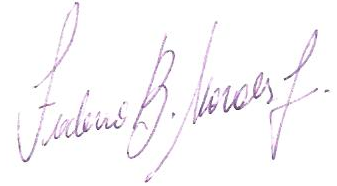 Federico B. Morales J.